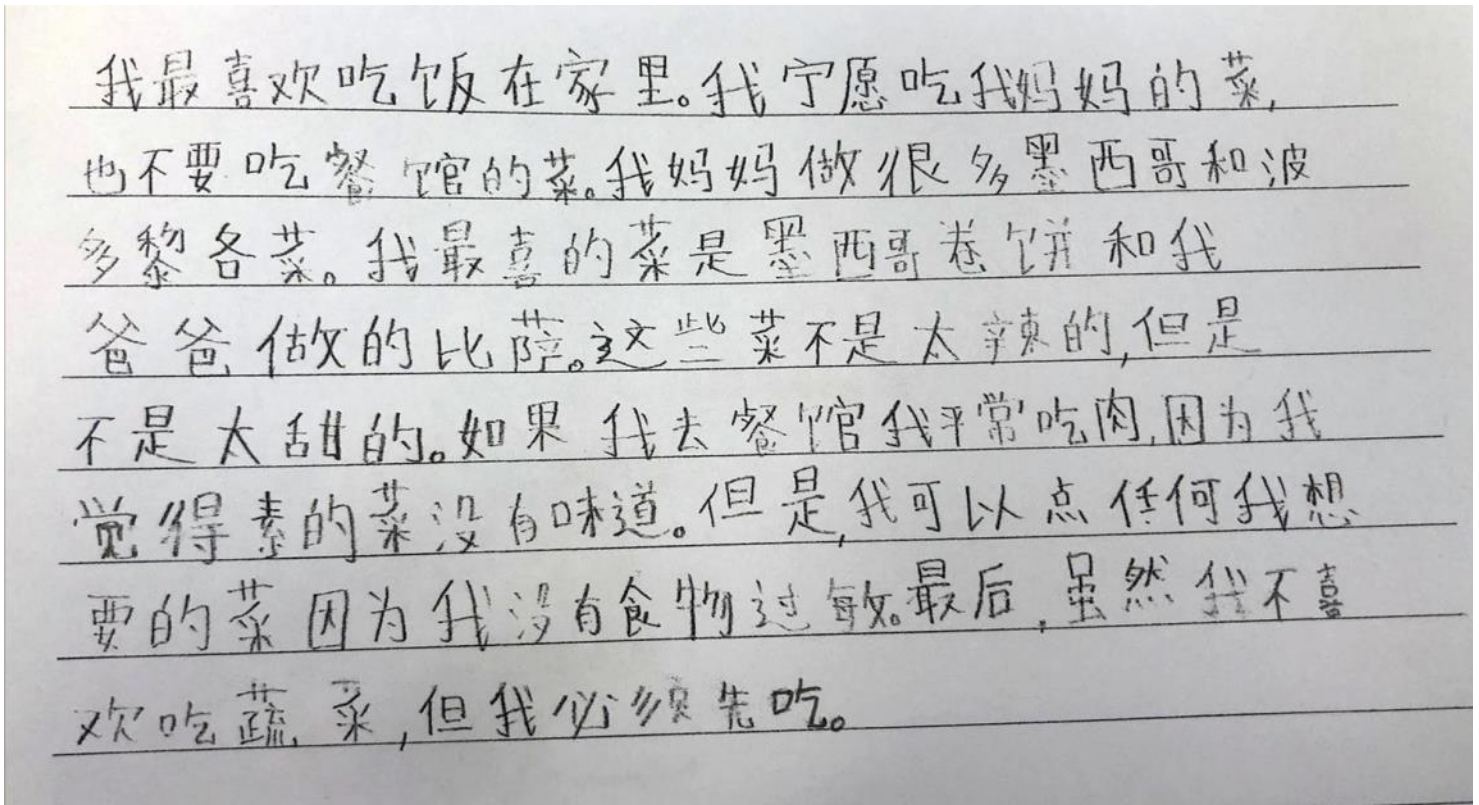 我最喜欢吃饭在家里。我宁愿吃我妈妈的菜,
也不要吃餐馆的菜。我妈妈做很多墨西哥和波
多黎各菜。我最喜的菜是墨西哥卷饼和我
爸爸做的比萨。这些菜不是太辣的,但是
不是太甜的。如果我去餐馆我平常吃肉,因为我
觉得素的菜没有味道。但是,我可以点任何我想
要的菜因为我没有食物过敏。最后,虽然我不喜
欢吃蔬菜,但我必须先吃。